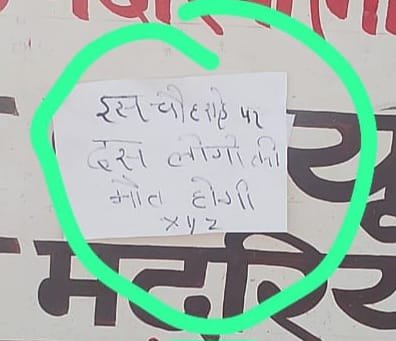 इस चौहराहे पर
दस लोगो की
मौत होगी
xyz
मदरि